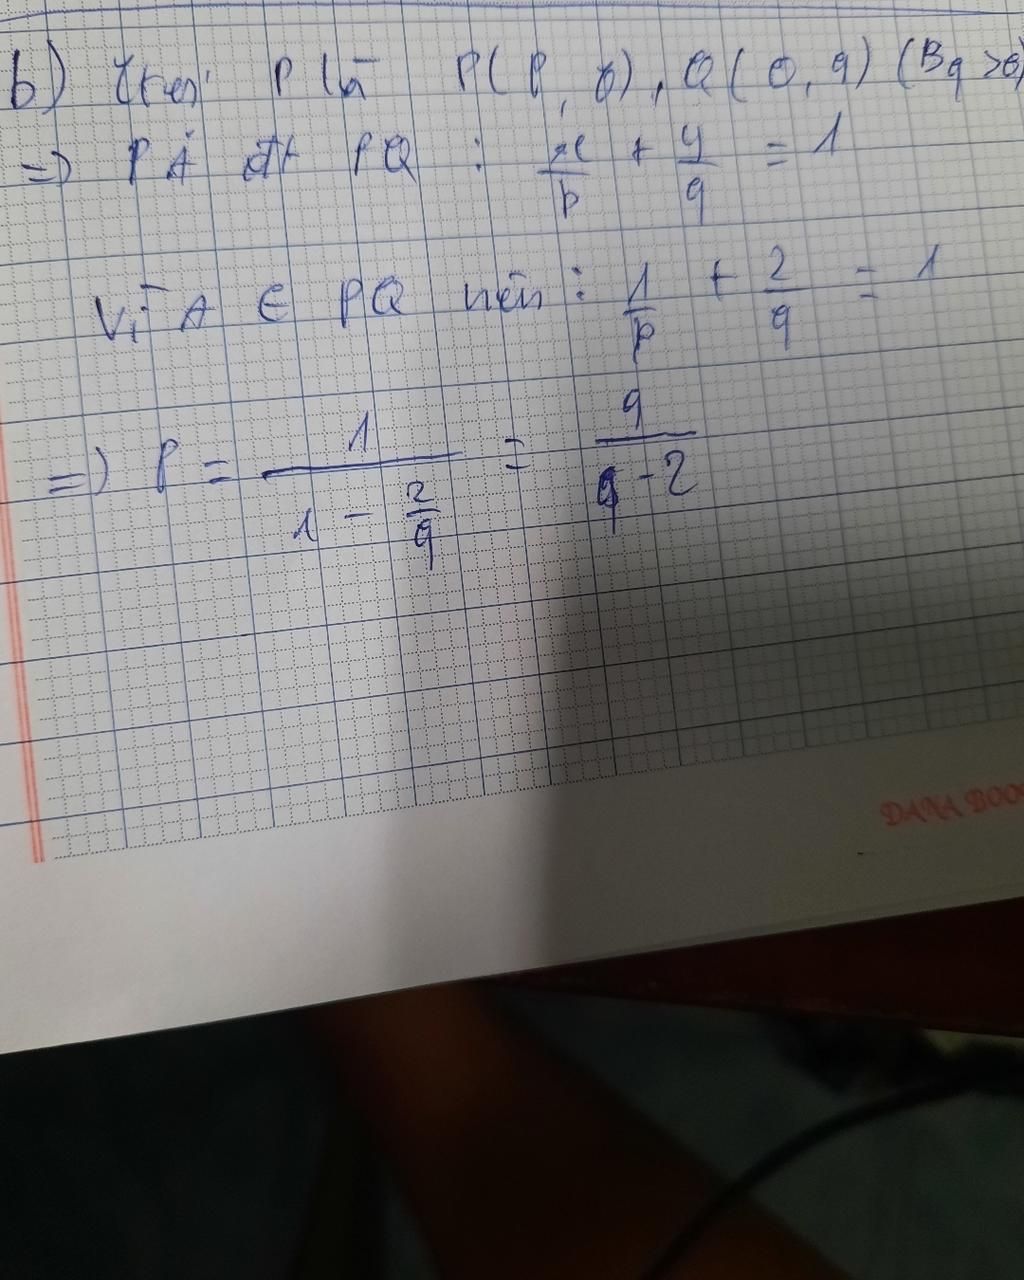 b) P là P(P, 0), Q(0, q) (
=> PT đt PQ : x/p + y/q = 1
Vì A ∈ PQ nên : 1/p + 2/q = 1
=> P = 1/(1 - 2/q) = q/(q - 2)
DANA BOO